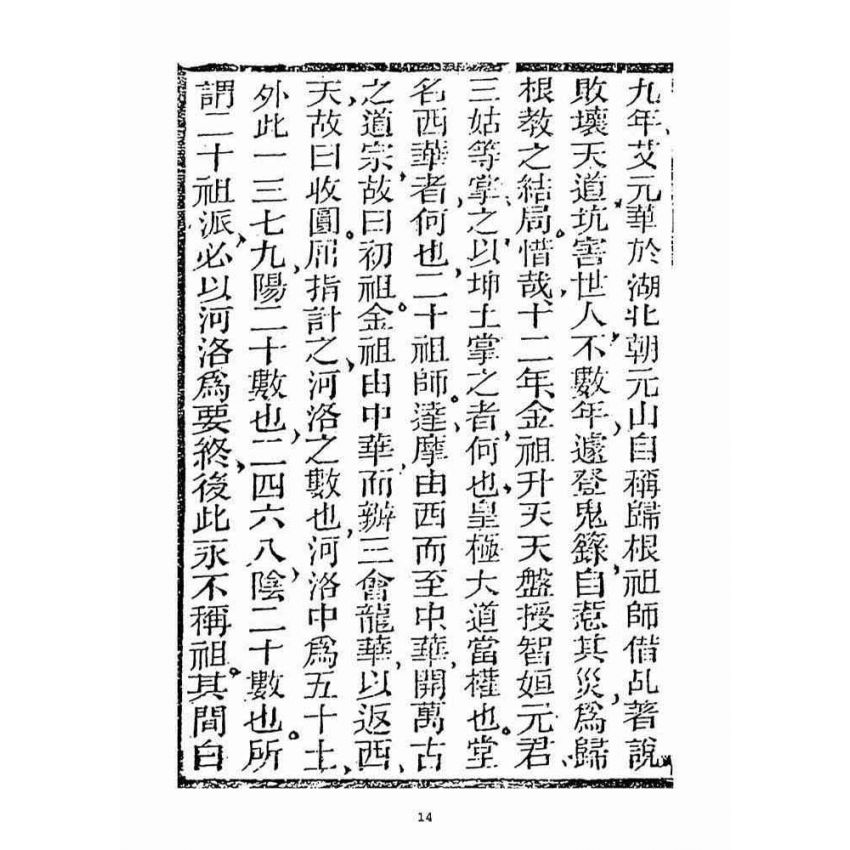 九年、艾元華於湖北朝元山自稱歸根祖師借乩著說
敗壞天道坑害世人、不數年、遽登鬼籙、自惹其災、爲歸
根教之結局。惜哉、十二年、金祖升天、天盤授智姮元君、
三姑等掌之、以坤土掌之者、何也、皇極大道當權也。堂
名西華者、何也、二十祖師。達摩由西而至中華、開萬古
之道宗、故曰初祖。金祖由中華而辦三會龍華、以返西
天、故曰收圓。屈指計之、河洛之數也、河洛中爲五十土、
外此一三七九、陽二十數也、二四六八、陰二十數也。所
謂二十祖派、必以河洛爲要終、後此永不稱祖。其間白
14